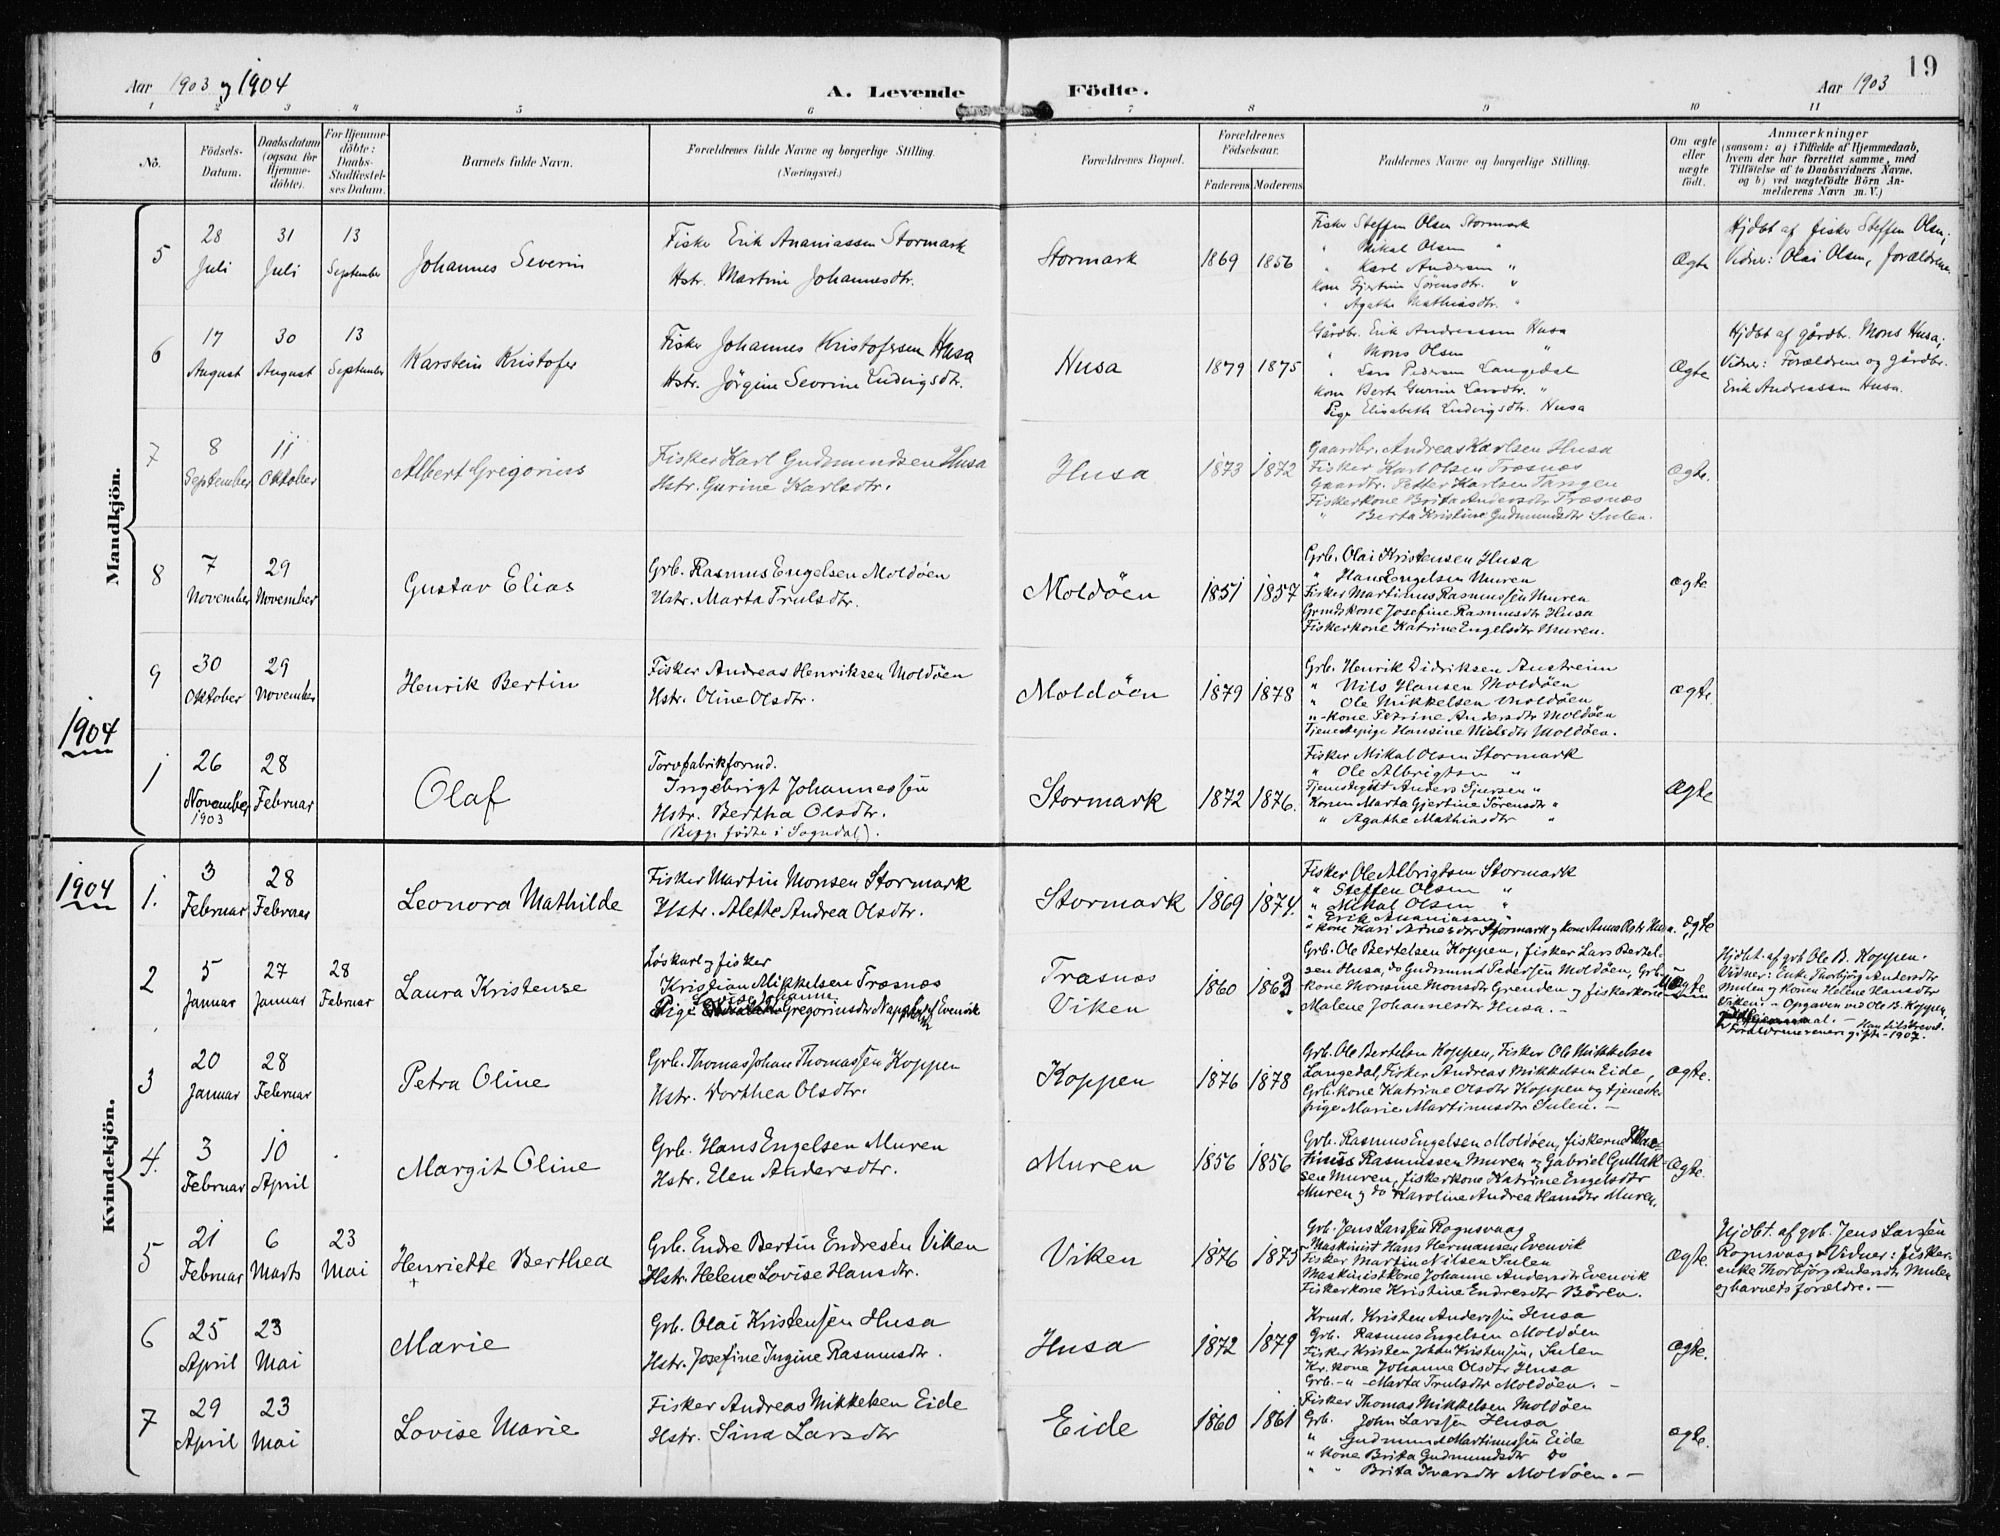 19
Aar 1903 og 1904
A. Levende Födte.
Aar 1903
1 2 3 4 5 6 7 8 9 10 11
No.
Födsels-Datum.
Daabsdatum (ogsaa for Hjemme-döbte).
For Hjemme-döbte: Daabs-Stadfæstel-ses Datum.
Barnets fulde Navn.
Forældrenes fulde Navne og borgerlige Stilling.
(Næringsvei.)
Forældrenes Bopæl.
Forældrenes Födselsaar.
Faderens Moderens
Faddernes Navne og borgerlige Stilling.
Om ægte eller uægte födt.
Anmærkninger
(saasom: a) i Tilfælde af Hjemmedaab,
hvem der har forrettet samme, med
Tilföielse af to Daabsvidners Navne.
og b) ved uægtefödte Börn An-
melderens Navn m. V.)
Mandkjön.
5
28 Juli
31 Juli
13 September
Johannes Severin
Fisker Erik Ananiassen Stormark
Hstr. Martine Johannesdtr.
Stormark
1869 1856
Fisker Steffen Olsen Stormark
" Mikal Olsen "
" Karl Andersen "
Kone Gjertine Sörensdtr. "
" Agathe Mathiasdtr. "
Ægte
Hjdbt af fisker Steffen Olsen;
Vidner: Olai Olsen, forældrene
6
17 August
30 August
13 September
Karstein Kristofer
Fisker Johannes Kristofersen Husa
Hstr. Jörgine Sevrine Ludvigsdtr.
Husa
1879 1875
Gårdbr. Erik Andreassen Husa
" Mons Olsen "
" Lars Pedersen Langedal
Kone Berte Gurine Larsdtr. "
Pige Elisabeth Ludvigsdtr. Husa
Ægte
Hjdbt af gårdbr. Mons Husa;
Vidner: Forældrene og gårdbr.
Erik Andreassen Husa.
7
8 September
11 Oktober
Albert Gregorius
Fisker Karl Gudmundsen Husa
Hstr. Gurine Karlsdtr.
Husa
1873 1872
Gaardbr. Andreas Karlsen Husa
Fisker Karl Olsen Træsnæs
Gaardtr. Petter Karlsen Tangen
Fiskerkone Brita Andersdtr Træsnæs
" Berta Kristine Gudmundsdtr Sulen.
ægte.
8
7 November
29 November
Gustav Elias
Grb. Rasmus Engelsen Moldöen
Hstr. Marta Trulsdtr.
Moldöen
1851 1857
Grb. Olai Kristensen Husa
" Hans Engelsen Muren
Fisker Martinus Rasmussen Muren
Grmdskone Josefine Rasmusdtr Husa
Fiskerkone Katrine Engelsdtr Muren.
ægte
9
30 Oktober
29 November
Henrik Bertin
Fisker Andreas Henriksen Moldöen
Hstr. Oline Olsdtr.
Moldöen
1879 1878
Grb. Henrik Didriksen Austreim
" Nils Hansen Moldöen
" Ole Mikkelsen Moldöen
"-kone Petrine Andersdtr Moldöen
Tjenestepige Hansine Nielsdtr Moldöen.
ægte.
1904
1
26 November 1903
28 Februar
Olaf
Torvfabrikformd.
Ingebrigt Johannessen
Hstr. Bertha Olsdtr.
(Begge födte i Sogndal).
Stormark
1872 1876.
Fisker Mikal Olsen Stormark
" Ole Albrigtsen "
Tjenestegut Anders Sjursen "
Konen Marta Gjertine Sörensdtr "
" Agathe Mathiasdtr "
Ægte
Kvindekjön.
1904
1.
3 Februar
28 Februar
Leonora Mathilde
Fisker Martin Monsen Stormark
Hstr. Alette Andrea Olsdtr.
Stormark
1869 1874.
Fisker Ole Albrigtsen Stormark
" Steffen Olsen "
" Mikal Olsen "
" Erik Ananiassen "
" kone Kari Arnesdtr Stormark og kone Anna Olsdtr Husa.
ægte
2
5 Januar
27 Januar
28 Februar
Laura Kristense
Löskarl og fisker
Kristian Mikkelsen Træsnæs
Lovise Johanne
Pige Gregoriusdtr Evenvik
Træsnæs
Viken
1860 1863
Grb. Ole Bertelsen Koppen, fisker Lars Bertel-
sen Husa, do Gudmund Pedersen Moldöen, Grb.-
kone Monsine Monsdtr Grenden og fiskerkone
Malene Johannesdtr Husa. -
uægte
Hjdbt. af grb Ole B. Koppen.
Vidner: Enke Thorbjörg Andersdtr
Mulen og konen Helene Hansdtr
Viken. - Opgaven ved Ole B. Koppen,
Forældrene senere gift - 1907.
3
20 Januar
28 Februar
Petra Oline
Grb. Thomas Johan Thomassen Koppen
Hstr. Dorthea Olsdtr.
Koppen
1876 1878
Grb. Ole Bertelsen Koppen, Fisker Ole Mikkelsen
Langedal, Fisker Andreas Mikkelsen Eide,
Grb.kone Katrine Olsdtr Koppen og tjeneste-
pige Marie Martinusdtr Sulen. -
ægte.
4.
3 Februar
10 April
Margit Oline
Grb. Hans Engelsen Muren
Hstr. Elen Andersdtr.
Muren
1856 1856
Grb. Rasmus Engelsen Moldöen, fiskerne Mar-
tinus Rasmussen Muren og Gabriel Gullak-
sen Muren, fiskerkone Katrine Engelsdtr
Muren og do Karoline Andrea Hansdtr Muren.
Ægte.
5
21 Februar
6 Marts
23 Mai
Henriette Berthea
Grb. Endre Bertin Endresen Viken
Hstr. Helene Lovise Hansdtr.
Viken
1876 1875
Grb. Jens Larssen Rognsvaag
Maskinist Hans Hermansen Evenvik
Fisker Martin Nilsen Sulen
Maskinistkone Johanne Andersdtr Evenvik
Fiskerkone Kristine Endresdtr Bören.
Ægte.
Hjdbt. af grb. Jens Larssen
Rognsvaag. Vidner: fisker-
enke Thorbjörg Andersdtr Mulen
og barnets forældre. -
6
25 April
23 Mai
Marie
Grb. Olai Kristensen Husa
Hstr. Josefine Ingine Rasmusdtr.
Husa
1872 1879
Krmd. Kristen Anderssen Husa
Grb. Rasmus Engelsen Moldöen
Fisker Kristen Johan Kristensen, Sulen
Kr. kone Johanna Olsdtr Husa
Grb. -"- Marta Trulsdtr Moldöen. -
ægte.
7
29 April
23 Mai
Lovise Marie
Fisker Andreas Mikkelsen Eide
Hstr. Sina Larsdtr
Eide
1860 1861
Fisker Thomas Mikkelsen Moldöen
Grb. John Larssen Husa
" Gudmund Martinussen Eide
" kone Brita Gudmundsdtr Do
" " Brita Ivarsdtr Moldöen. -
ægte.